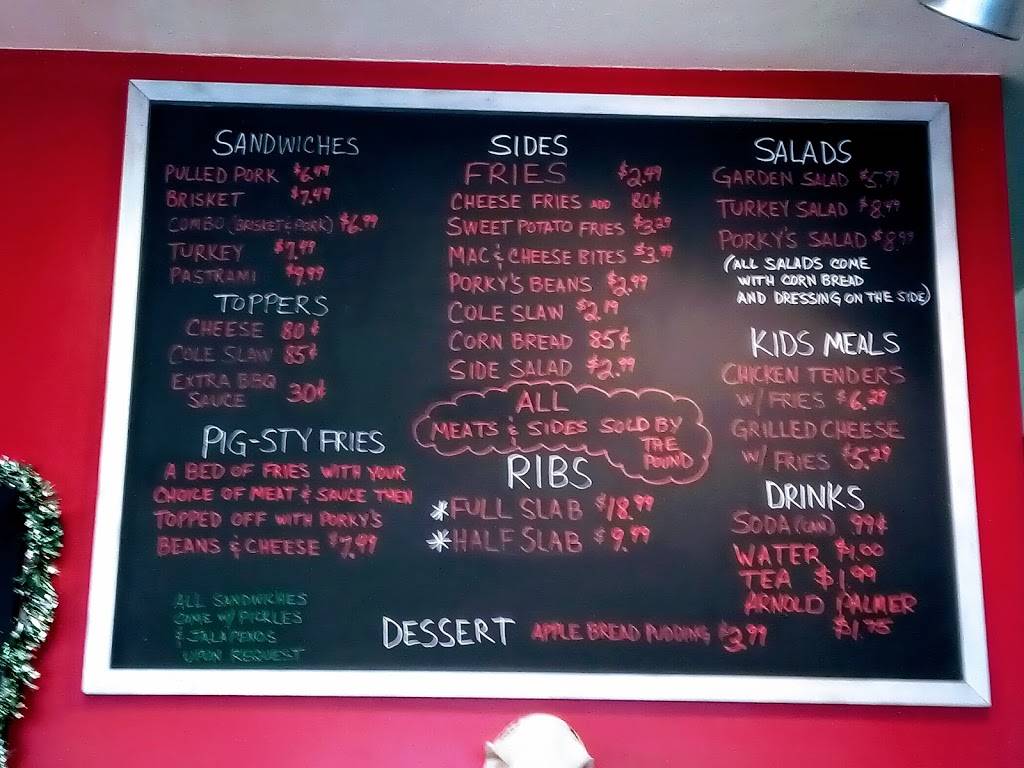 SANDWICHES
PULLED PORK $6.49
BRISKET $7.49
COMBO (BRISKET & PORK) $6.99
TURKEY $7.49
PASTRAMI $9.99
TOPPERS
CHEESE 80¢
COLE SLAW 85¢
EXTRA BBQ
SAUCE 30¢
PIG-STY FRIES
A BED OF FRIES WITH YOUR
CHOICE OF MEAT & SAUCE THEN
TOPPED OFF WITH PORKY'S
BEANS & CHEESE $7.49
ALL SANDWICHES
COME W/ PICKLES
& JALAPENOS
UPON REQUEST
SIDES
FRIES $2.49
CHEESE FRIES ADD 80¢
SWEET POTATO FRIES $3.29
MAC & CHEESE BITES $3.99
PORKY'S BEANS $2.99
COLE SLAW $2.19
CORN BREAD 85¢
SIDE SALAD $2.99
ALL
MEATS & SIDES SOLD BY
THE
POUND
RIBS
*FULL SLAB $18.99
*HALF SLAB $9.99
DESSERT APPLE BREAD PUDDING $3.99
SALADS
GARDEN SALAD $5.99
TURKEY SALAD $8.49
PORKY'S SALAD $8.99
(ALL SALADS COME
WITH CORN BREAD
AND DRESSING ON THE SIDE)
KIDS MEALS
CHICKEN TENDERS
W/ FRIES $6.29
GRILLED CHEESE
W/ FRIES $5.29
DRINKS
SODA (CAN) .99¢
WATER $1.00
TEA $1.99
ARNOLD PALMER
$1.75